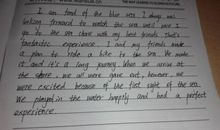 I am fond of the blue sea. I always and
looking forward to watch the sea until now I
go to the sea shore with my best friends. That's
fantastic experience. I and my friends make
a plan to ride a bike to the sea. We make
it and it's a long journey when we arrive at
the shore, we all were gave out, however, we
were excited because of the fist sight of the sea.
We played in the water happily and had a perfect
experience.